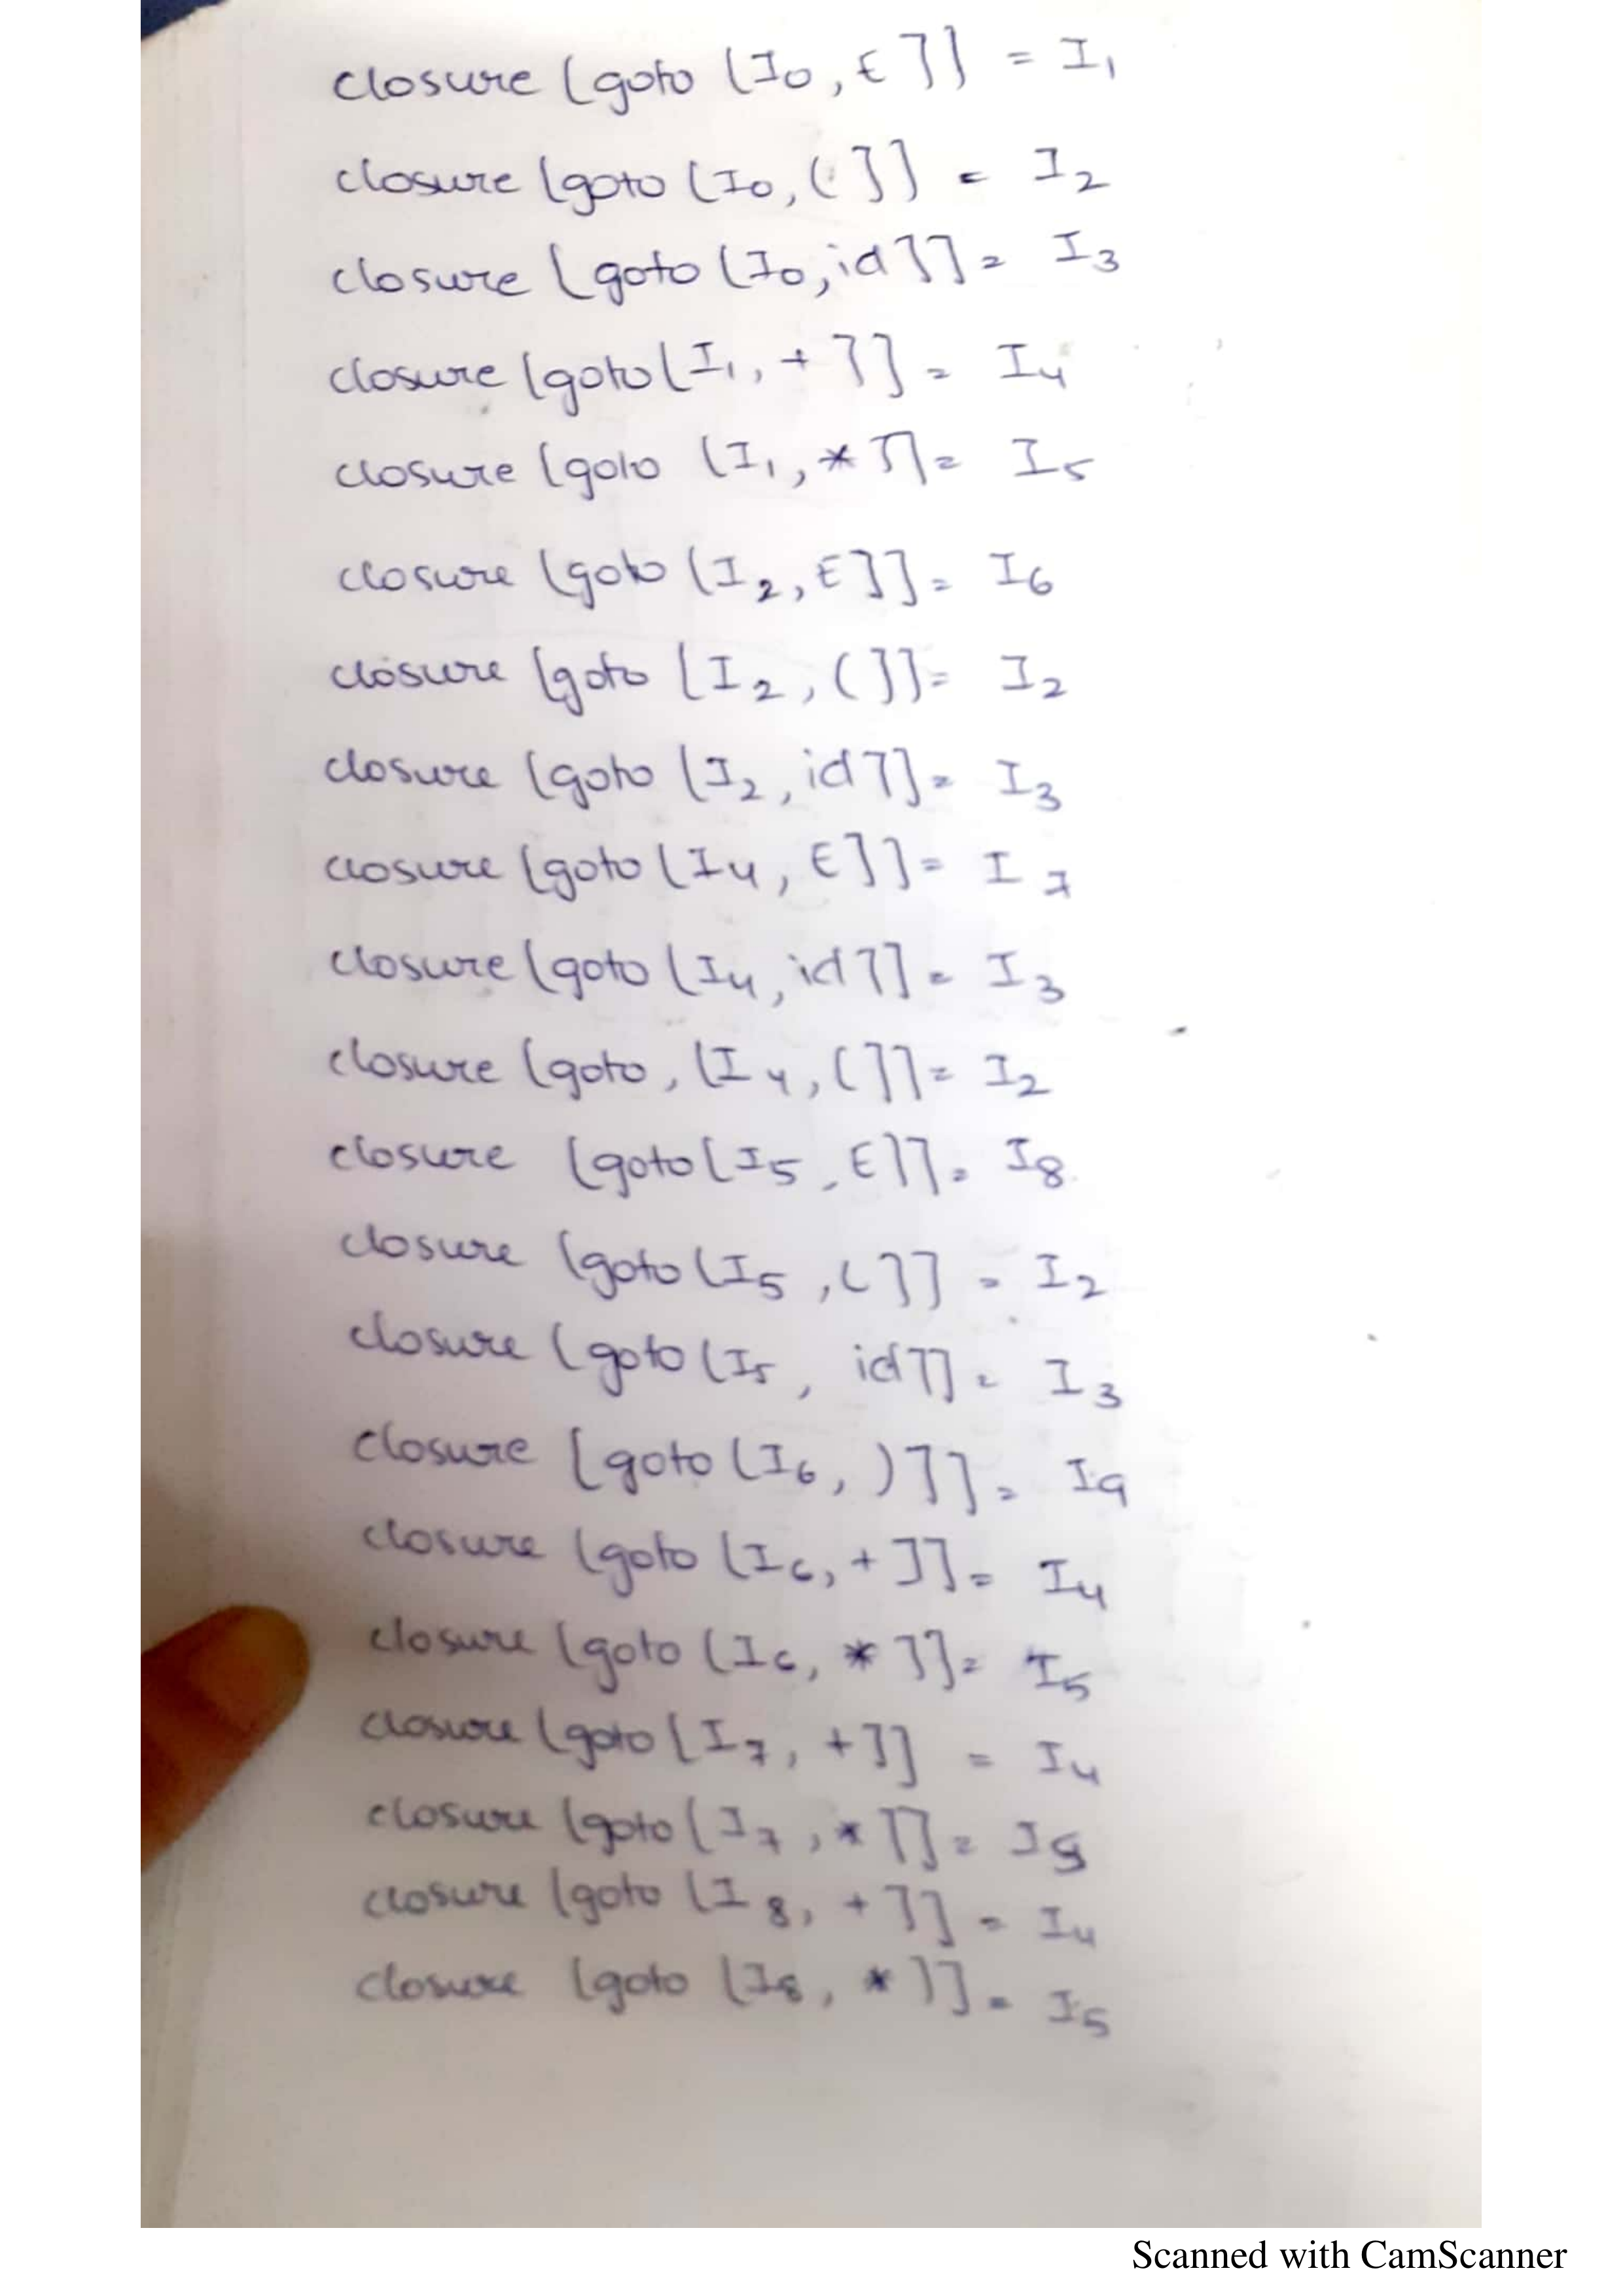 closure [goto [I0, E]] = I1
closure [goto [I0, (]] = I2
closure [goto [I0, id]] = I3
closure [goto [I1, +]] = I4
closure [goto [I1, *]] = I5
closure [goto [I2, E]] = I6
closure [goto [I2, (]] = I2
closure [goto [I2, id]] = I3
closure [goto [I4, E]] = I7
closure [goto [I4, id]] = I3
closure [goto, [I4, (]] = I2
closure [goto [I5, E]] = I8
closure [goto [I5, (]] = I2
closure [goto [I5, id]] = I3
closure [goto [I6, )]] = I9
closure [goto [I6, +]] = I4
closure [goto [I6, *]] = I5
closure [goto [I7, +]] = I4
closure [goto [I7, *]] = I5
closure [goto [I8, +]] = I4
closure [goto [I8, *]] = I5
Scanned with CamScanner